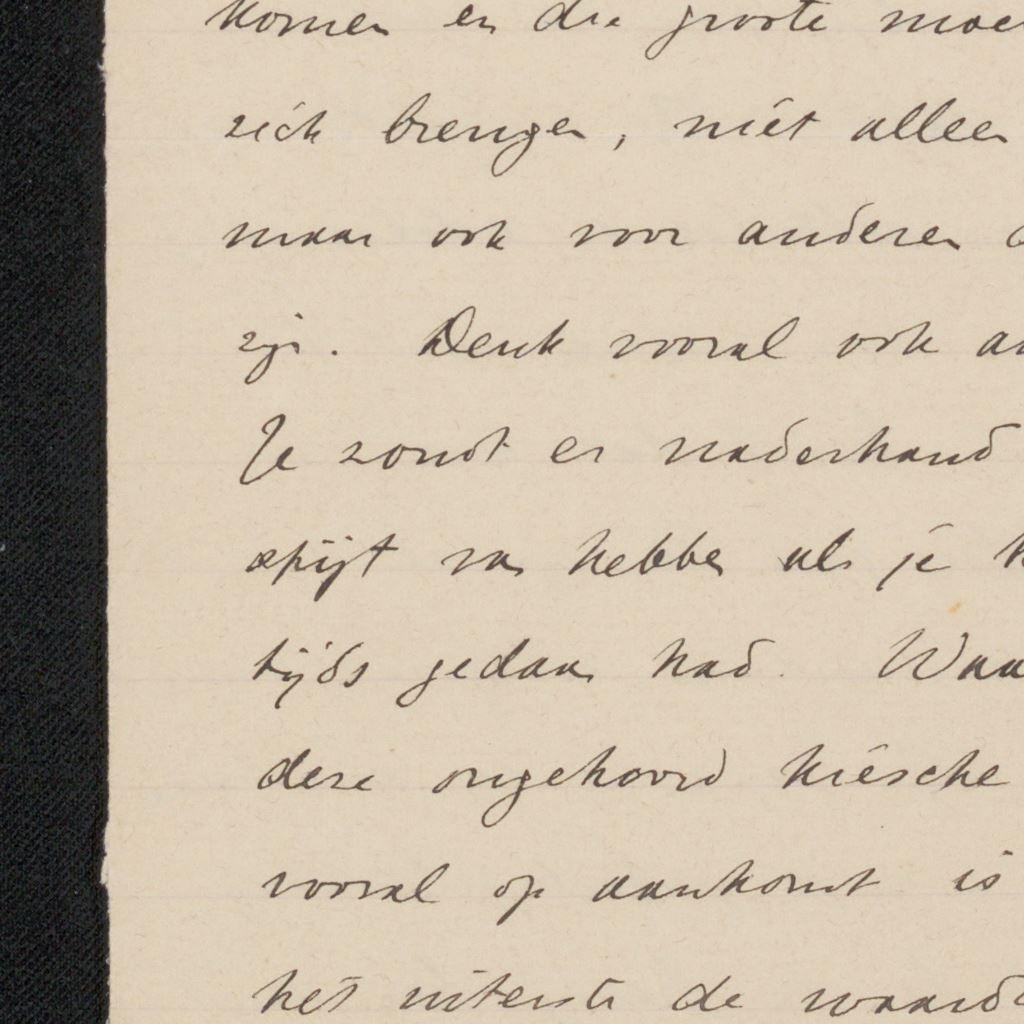 komen en die groote moe
zich brengen, niet alleen
maar ook voor anderen
zijn. Denk vooral ook aa
Je zoudt er naderhand
spijt van hebben als je
tijds gedaan had. Waa
deze ongehoord kiesche
vooral op aankomt is
het uiterste de waard